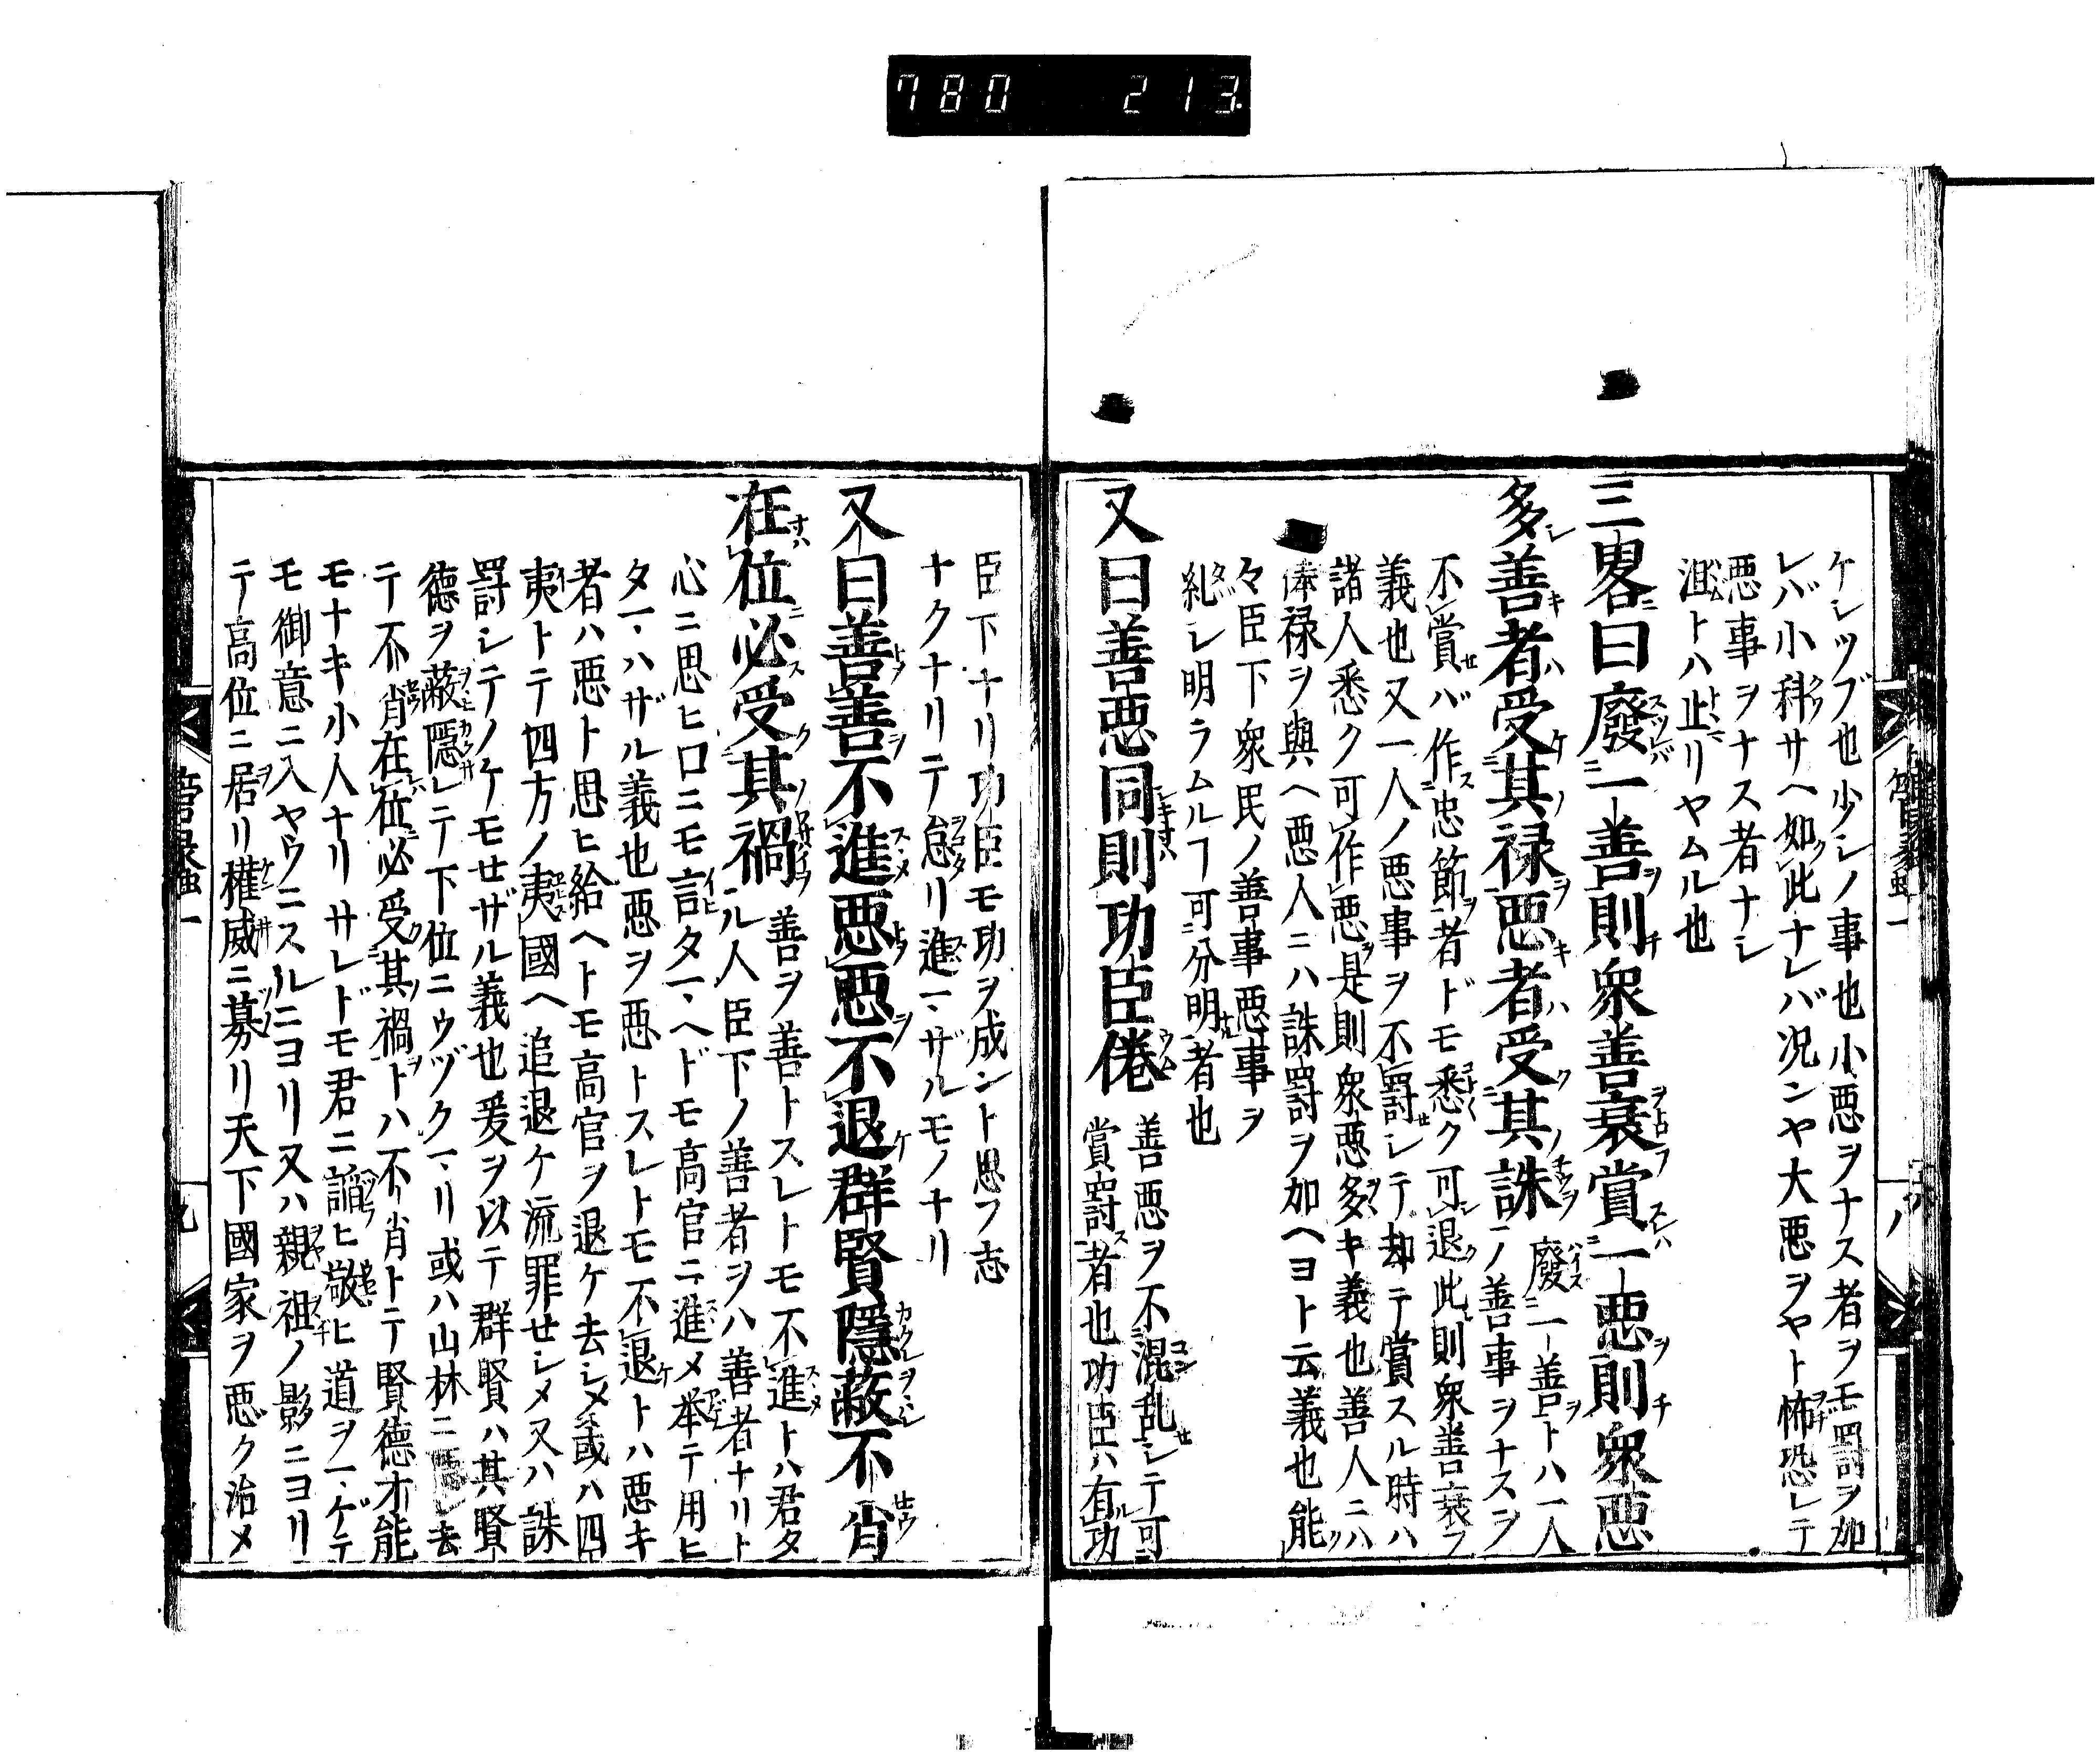 780 213
ケレツブ也少シノ事也小悪ヲナス者ヲモ罰ヲ加
レバ小科サヘ如此ナレバ況ンヤ大悪ヲヤト怖恐レテ
悪事ヲナス者ナシ
沮トハ止リヤムル也
三畧曰廢一善則衆善衰賞一悪則衆悪
多善者受其禄悪者受其誅
廢一善トハ一人
ノ善事ヲナスヲ
不賞バ作忠節者ドモ悉ク可退此則衆善衰フ
義也又一人ノ悪事ヲ不罰シテ却テ賞スル時ハ
諸人悉ク可作悪是則衆悪多キ義也善人ニハ
俸禄ヲ與ヘ悪人ニハ誅罸ヲ加ヘヨト云義也能
々臣下衆民ノ善事悪事ヲ
糺レ明ラムルヿ可分明者也
又曰善悪同則功臣倦
善悪ヲ不混乱シテ可
賞罸者也功臣ハ有功
臣下ナリ功臣モ功ヲ成ント思フ志
ナクナリテ怠リ進マザルモノナリ
又曰善善不進悪悪不退群賢隱蔽不肖
在位必受其禍
善ヲ善トスレトモ不進トハ君タ
ル人臣下ノ善者ヲハ善者ナリト
心ニ思ヒ口ニモ言タマヘドモ高官ニ進メ挙テ用ヒ
タマハザル義也悪ヲ悪トスレトモ不退トハ悪キ
者ハ悪ト思ヒ給ヘトモ高官ヲ退ケ去シメ或ハ四
夷トテ四方ノ夷國ヘ追退ケ流罪セシメ又ハ誅
罸シテノケモせザル義也爰ヲ以テ群賢ハ其賢
徳ヲ蔽隱レテ下位ニウヅクマリ或ハ山林ニレ去
テ不肖在位必受其禍トハ不肖トテ賢徳才能
モナキ小人ナリサレドモ君ニ謟ヒ敬ヒ道ヲマゲテ
モ御意ニ入ヤウニスルニヨリ又ハ親祖ノ影ニヨリ
テ高位ニ居リ權威ニ募リ天下國家ヲ悪ク治メ